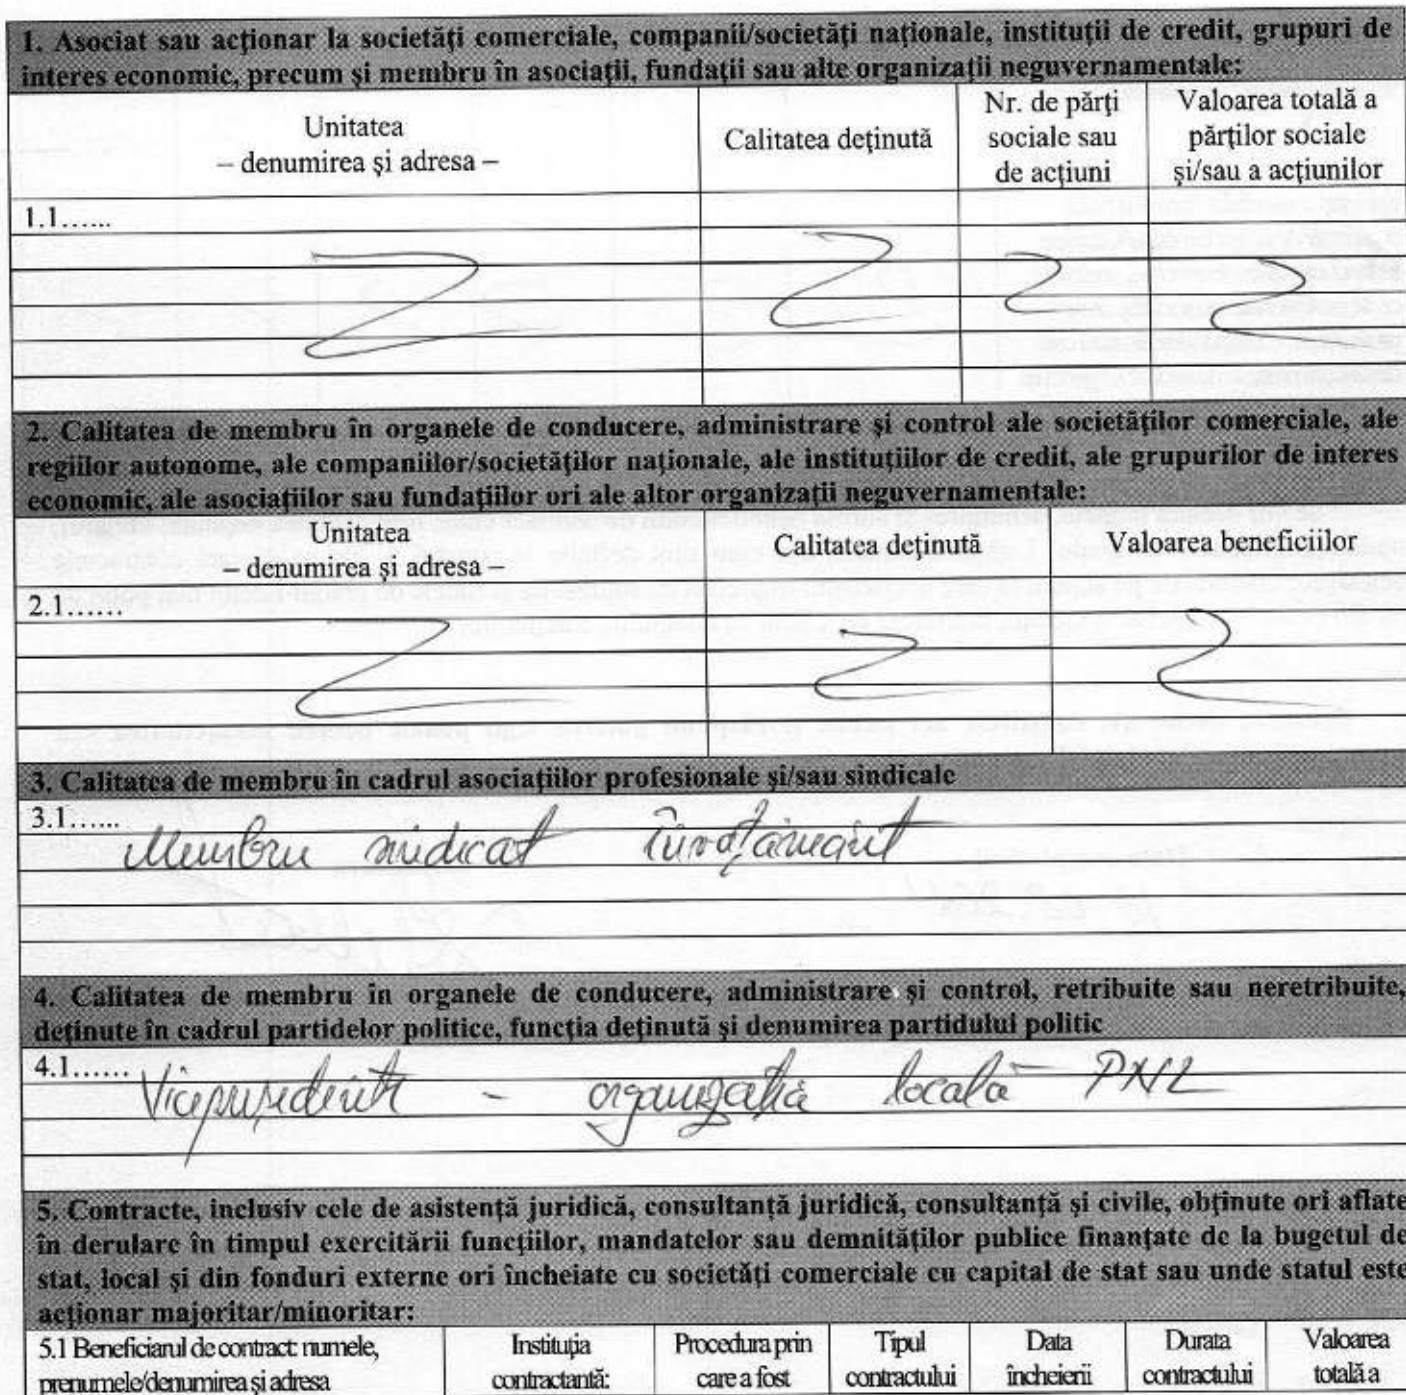 1. Asociat sau acţionar la societăţi comerciale, companii/societăţi naţionale, instituţii de credit, grupuri de
interes economic, precum şi membru în asociaţii, fundaţii sau alte organizaţii neguvernamentale:
Unitatea
– denumirea şi adresa –
Calitatea deţinută
Nr. de părţi
sociale sau
de acţiuni
Valoarea totală a
părţilor sociale
şi/sau a acţiunilor
1.1......
2. Calitatea de membru în organele de conducere, administrare şi control ale societăţilor comerciale, ale
regiilor autonome, ale companiilor/societăţilor naţionale, ale instituţiilor de credit, ale grupurilor de interes
economic, ale asociaţiilor sau fundaţiilor ori ale altor organizaţii neguvernamentale:
Unitatea
– denumirea şi adresa –
Calitatea deţinută
Valoarea beneficiilor
2.1......
3. Calitatea de membru în cadrul asociaţiilor profesionale şi/sau sindicale
3.1......
Membru sindicat învăţământ
4. Calitatea de membru în organele de conducere, administrare şi control, retribuite sau neretribuite,
deţinute în cadrul partidelor politice, funcţia deţinută şi denumirea partidului politic
4.1......
Vicepreşedinte - organizaţia locală PNL
5. Contracte, inclusiv cele de asistenţă juridică, consultanţă juridică, consultanţă şi civile, obţinute ori aflate
în derulare în timpul exercitării funcţiilor, mandatelor sau demnităţilor publice finanţate de la bugetul de
stat, local şi din fonduri externe ori încheiate cu societăţi comerciale cu capital de stat sau unde statul este
acţionar majoritar/minoritar:
5.1 Beneficiarul de contract: numele,
prenumele/denumirea şi adresa
Instituţia
contractantă:
Procedura prin
care a fost
Tipul
contractului
Data
încheierii
Durata
contractului
Valoarea
totală a